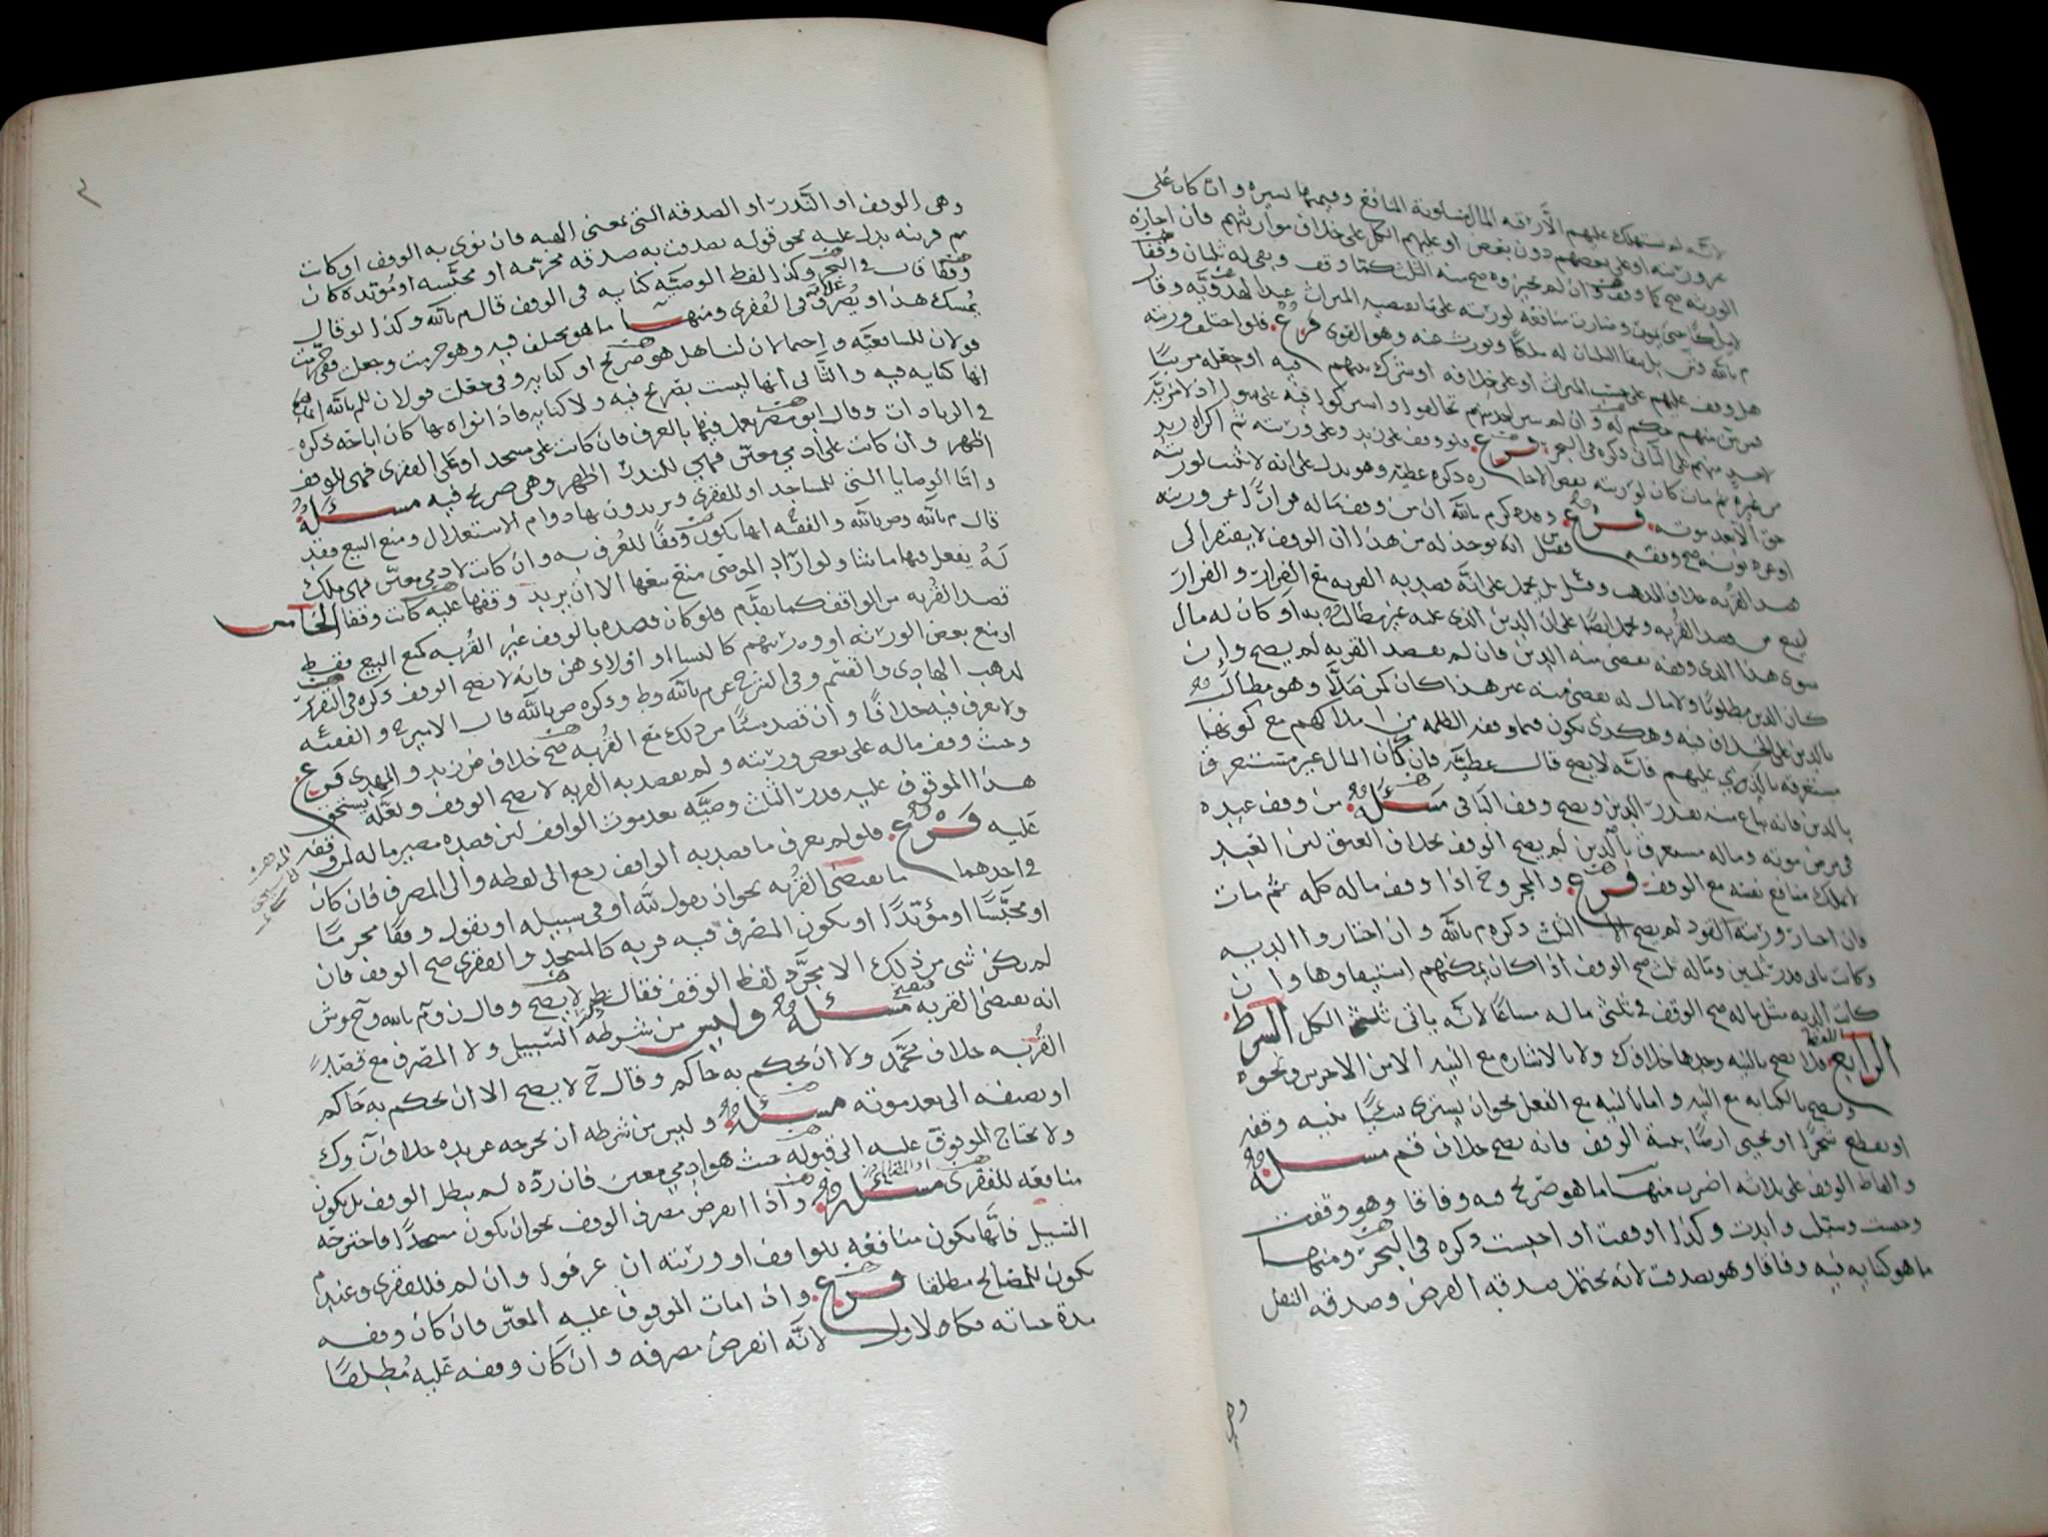 لانه لم يستهلك عليهم الا رقبة المال مسلوبة المنافع وقيمتها يسيره وان كان على
ورثته او على بعضهم دون بعض او عليهم الكل على خلاف مواريثهم فان اجازه
الورثه صح كما وقف وان لم يجيزوه صح منه الثلث كما وقف وبقي له ثلثان وقفا
هل وقف عليهم على حسب الميراث او على خلافه او شرك بينهم فيه او جعله مرتبا
فمن بين منهم حكم له وان لم يبين احد منهم تحالفوا واشتركوا فيه على سوا اذ لا مزية
لاحد منهم على الثاني ذكره في البحر فرع فلو وقف على زيد وعلى ورثته ثم اكراه زيد
من غيره ثم مات كان لورثته نقض الاجاره ذكره عطيه وهو يدل على انه لا يثبت لورثته
حق الا بعد موته فرع وذكر م بالله ان من وقف ماله فرارا عن ورثته
او عزه توبته صح وقفه فقيل انه يوخذ له من هذا ان الوقف لا يفتقر الى
قصد القربه خلاف المذهب وقيل بل يحمل على انه قصد به القربه مع الفرار والفرار
ليس من قصد القربه ويحمل ايضا على ان الدين الذي عليه غير مطالب به او كان له مال
سوى هذا الذي وقفه يقضي منه الدين فان لم يقصد القربه لم يصح وان
كان الدين مطلوبا ولا مال له يقضي منه غير هذا كان كمن صلا وهو مطالب
بالدين على الخلاف فيه وهكذى يكون فيما وقفه الظلمه من املاكهم مع كونها
مستغرقه بالذي عليهم فانه لا يصح قال عطيه فان كان المال غير مستغرق
بالدين فانه يباع منه بقدر الدين ويصح وقف الباقي مسئله من وقف عبده
في مرض موته وماله مستغرق بالدين لم يصح الوقف بخلاف العتق لان العبد
لا يملك منافع نفسه مع الوقف فرع والمجروح اذا وقف ماله كله ثم مات
فان اختار ورثته القود لم يصح الا الثلث ذكره م بالله وان اختاروا الديه
وكانت تاتي قدر ثلثين وماله ثلث صح الوقف اذا كان يمكنهم استيفاوها وان
كانت الديه مثل ماله صح الوقف في ثلثي ماله مشاعا لانه ياتي ثلث الكل الشرط
الرابع اللفظ فلا يصح بالنيه وحدها خلاف ك ولا بالاشاره مع النيه الا من الاخرس ونحوه
ويصح بالكتابه مع النيه واما بالنيه مع الفعل نحو ان يشتري شيئا بنية وقفه
او يقطع شجرا او يحيي ارضا بنية الوقف فانه يصح خلاف قم مسئله
والفاظ الوقف على ثلاثه اضرب منها ما هو صريح فيه وفاقا وهو وقفت
وحبست وسبلت وابدت وكذا اوقفت او احبست ذكره في البحر ومنها
ما هو كنايه فيه وفاقا وهو تصدقت لانه يحتمل صدقه الفرض وصدقه النفل
وهي
وهي الوقف او النذر او الصدقه التي بمعنى الهبه فان نوى به الوقف او كانت
ثم قرينه تدل عليه نحو قوله تصدقت به صدقه محرمه او محبسه او مؤبده كان
وقفا قال في البحر وكذا لفظ الوصيه كنايه في الوقف قال م بالله وكذا لو قال
يمسك هذا او يصرف غلاته في الفقرى ومنها ما هو مختلف فيه وهو حرمت وجعلت ففي حرمت
قولان للشافعيه واحتمالان لنا هل هو صريح او كنايه وفي جعلت قولان للم بالله
انها كنايه فيه والثاني انها ليست بصريح فيه ولا كنايه فاذا نواه بها كان اباحه ذكره
في الزيادات وقال ابو مضر يعمل فيها بالعرف فان كانت على مسجد او على الفقرى فهي للوقف
اظهر وان كانت على ادمي معين فهي للنذر اظهر وهي صريح فيه مسئله
واما الوصايا التي للمساجد او للفقرى ويريدون بها دوام الاستغلال ومنع البيع فقد
قال م بالله وص بالله والفقه انها تكون وقفا للعرف به وان كانت لادمي معين فهي ملك
له يفعل فيها ما شا ولو اراد الموصى منع بيعها الا ان يريد وقفها عليه كانت وقفا الخامس
قصد القربه من الواقف كما تقدم فلو كان قصده بالوقف غير القربه كمنع البيع فقط
او منع بعض الورثه او ورثتهم كالنسا او اولادهن فانه لا يصح الوقف ذكره في التقرير
لمذهب الهادي والقسم وفي الشرح عن م بالله وط وذكره ص بالله قال الامير ح والفقيه
ولا يعرف فيه خلافا وان قصد شيئا من ذلك مع القربه صح خلاف ض زيد والمهدي فرع
وحيث وقف ماله على بعض ورثته ولم يقصد به القربه لا يصح الوقف ولعله يستحق
هذا الموقوف عليه قدر الثلث وصيه بعد موت الواقف لان قصده مصير ماله لمن وقفه
عليه فرع فلو لم يعرف ما قصد به الواقف رجع الى لفظه والى المصرف فان كان
في احدهما ما يقتضي القربه نحو ان يقول لله او في سبيله او يقول وقفا محرما
او محبسا او مؤبدا او يكون المصرف فيه قربه كالمسجد والفقرى صح الوقف فان
لم يكن شي من ذلك الا مجرد لفظ الوقف فقال ط لا يصح وقال ن وم بالله وح وش
انه يقتضي القربه فيصح مسئله وليس من شرطه التسبيل ولا المصرف مع قصد
القربه خلاف محمد ولا ان يحكم به حاكم وقال ح لا يصح الا ان يحكم به حاكم
او يضيفه الى بعد موته مسئله وليس من شرطه ان يخرجه عن يده خلاف ن وك
ولا يحتاج الموقوف عليه الى قبوله حيث هو ادمي معين فان رده لم يبطل الوقف بل يكون
منافعه للفقرى مسئله واذا انقرض مصرف الوقف نحو ان يكون مسجدا فاخترجه
السيل فانها تكون منافعه للواقف او ورثته ان عرفوا وان لم فللفقرى وعند م
يكون للمصالح مطلقا فرع واذا مات الموقوف عليه المعين فان كان وقفه
مدة حياته فكالاول لانه انقرض مصرفه وان كان وقفه عليه مطلقا